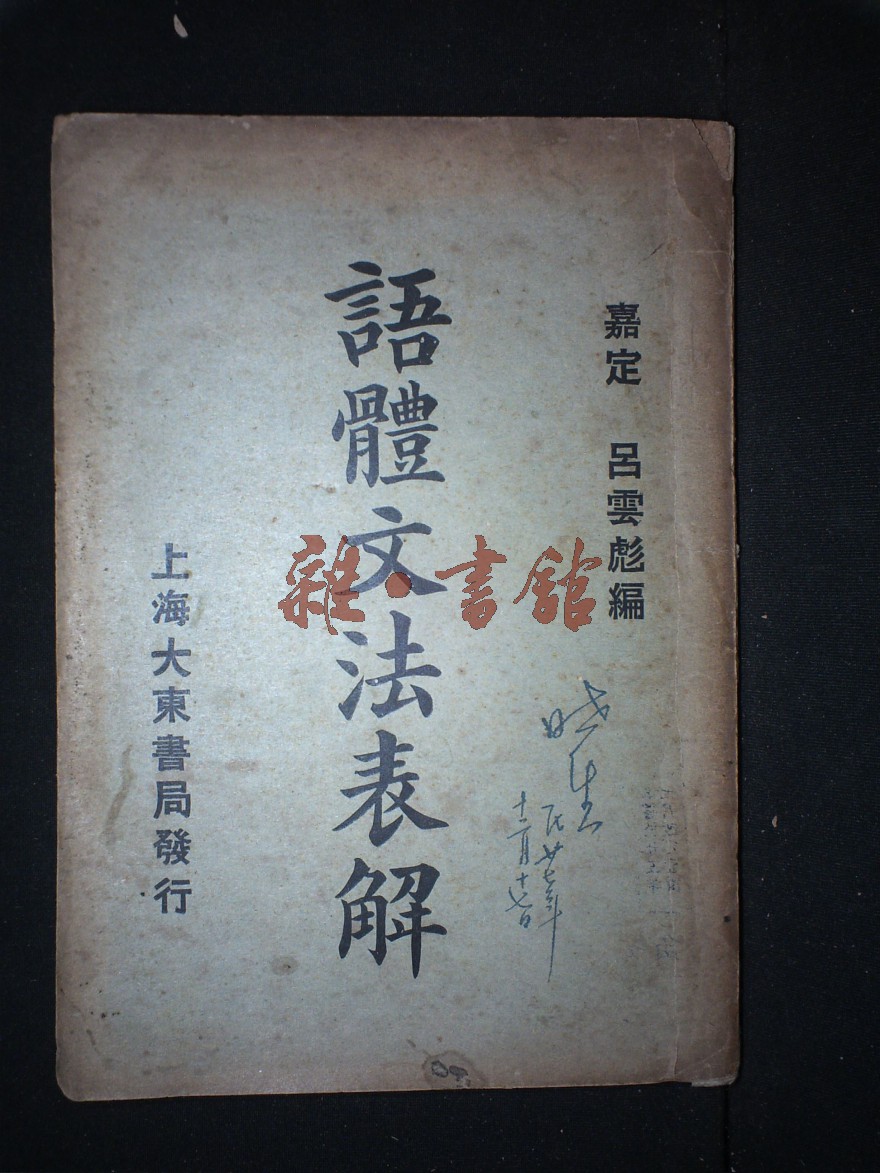 嘉定 呂雲彪編
語體文法表解
上海大東書局發行
雜·書館
民廿七年
十二月十七日